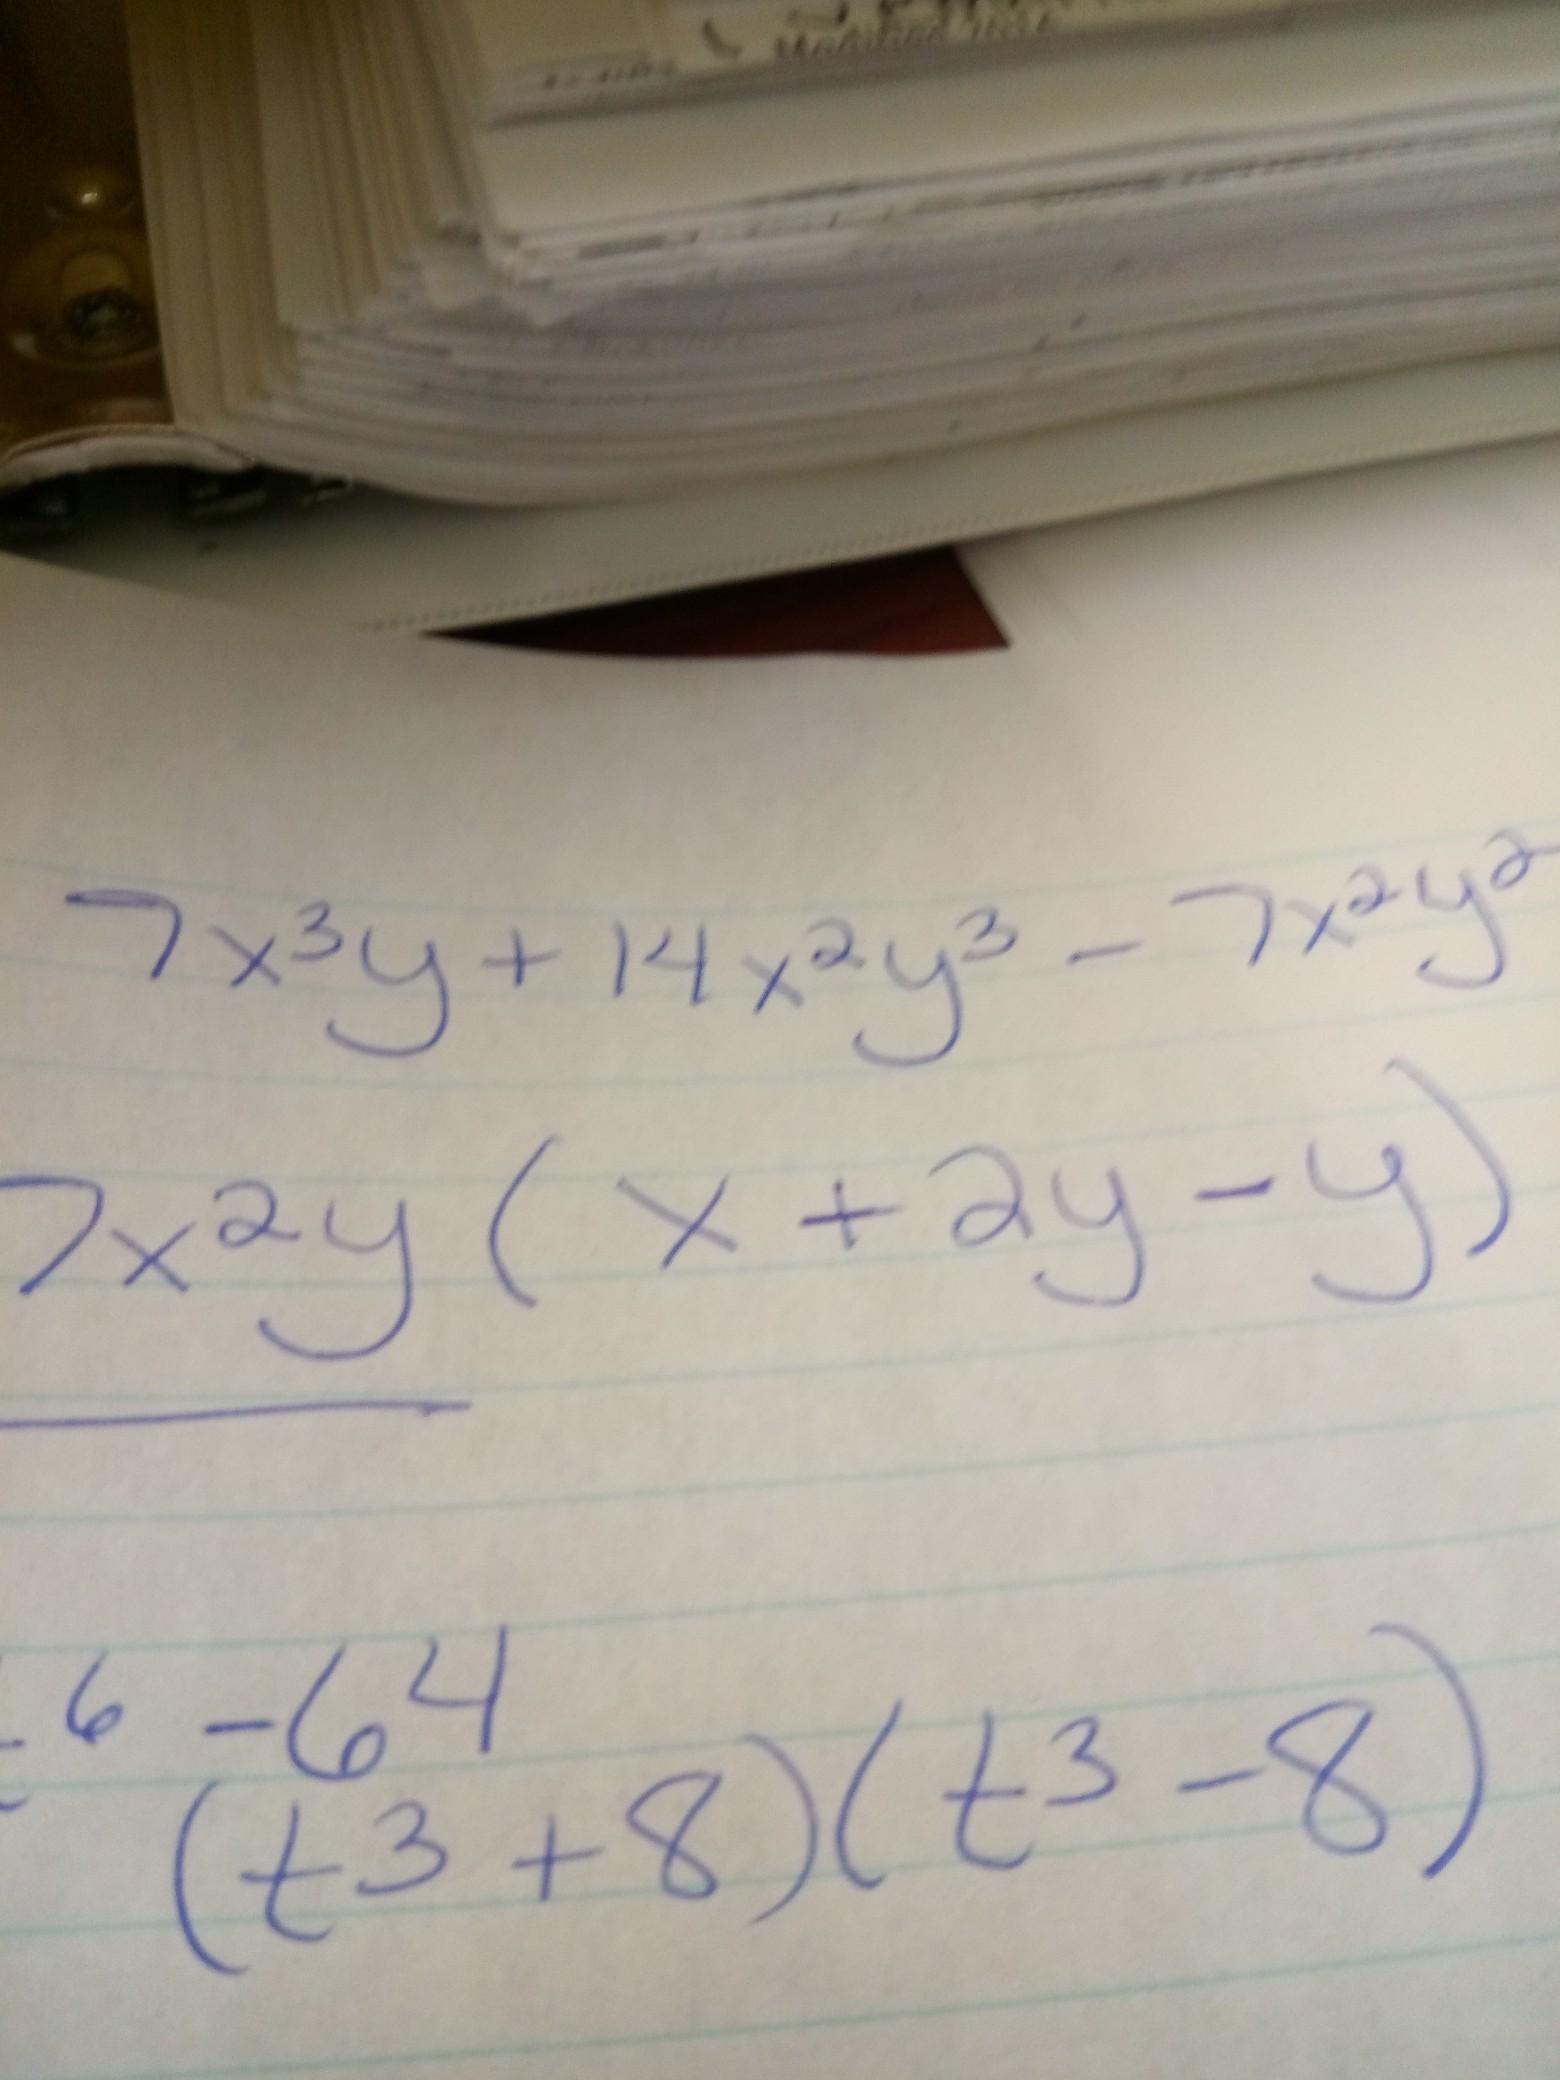 7x³y + 14x²y³ - 7x²y²
7x²y ( x + 2y - y )
⁶ - 64
(t³ + 8)(t³ - 8)